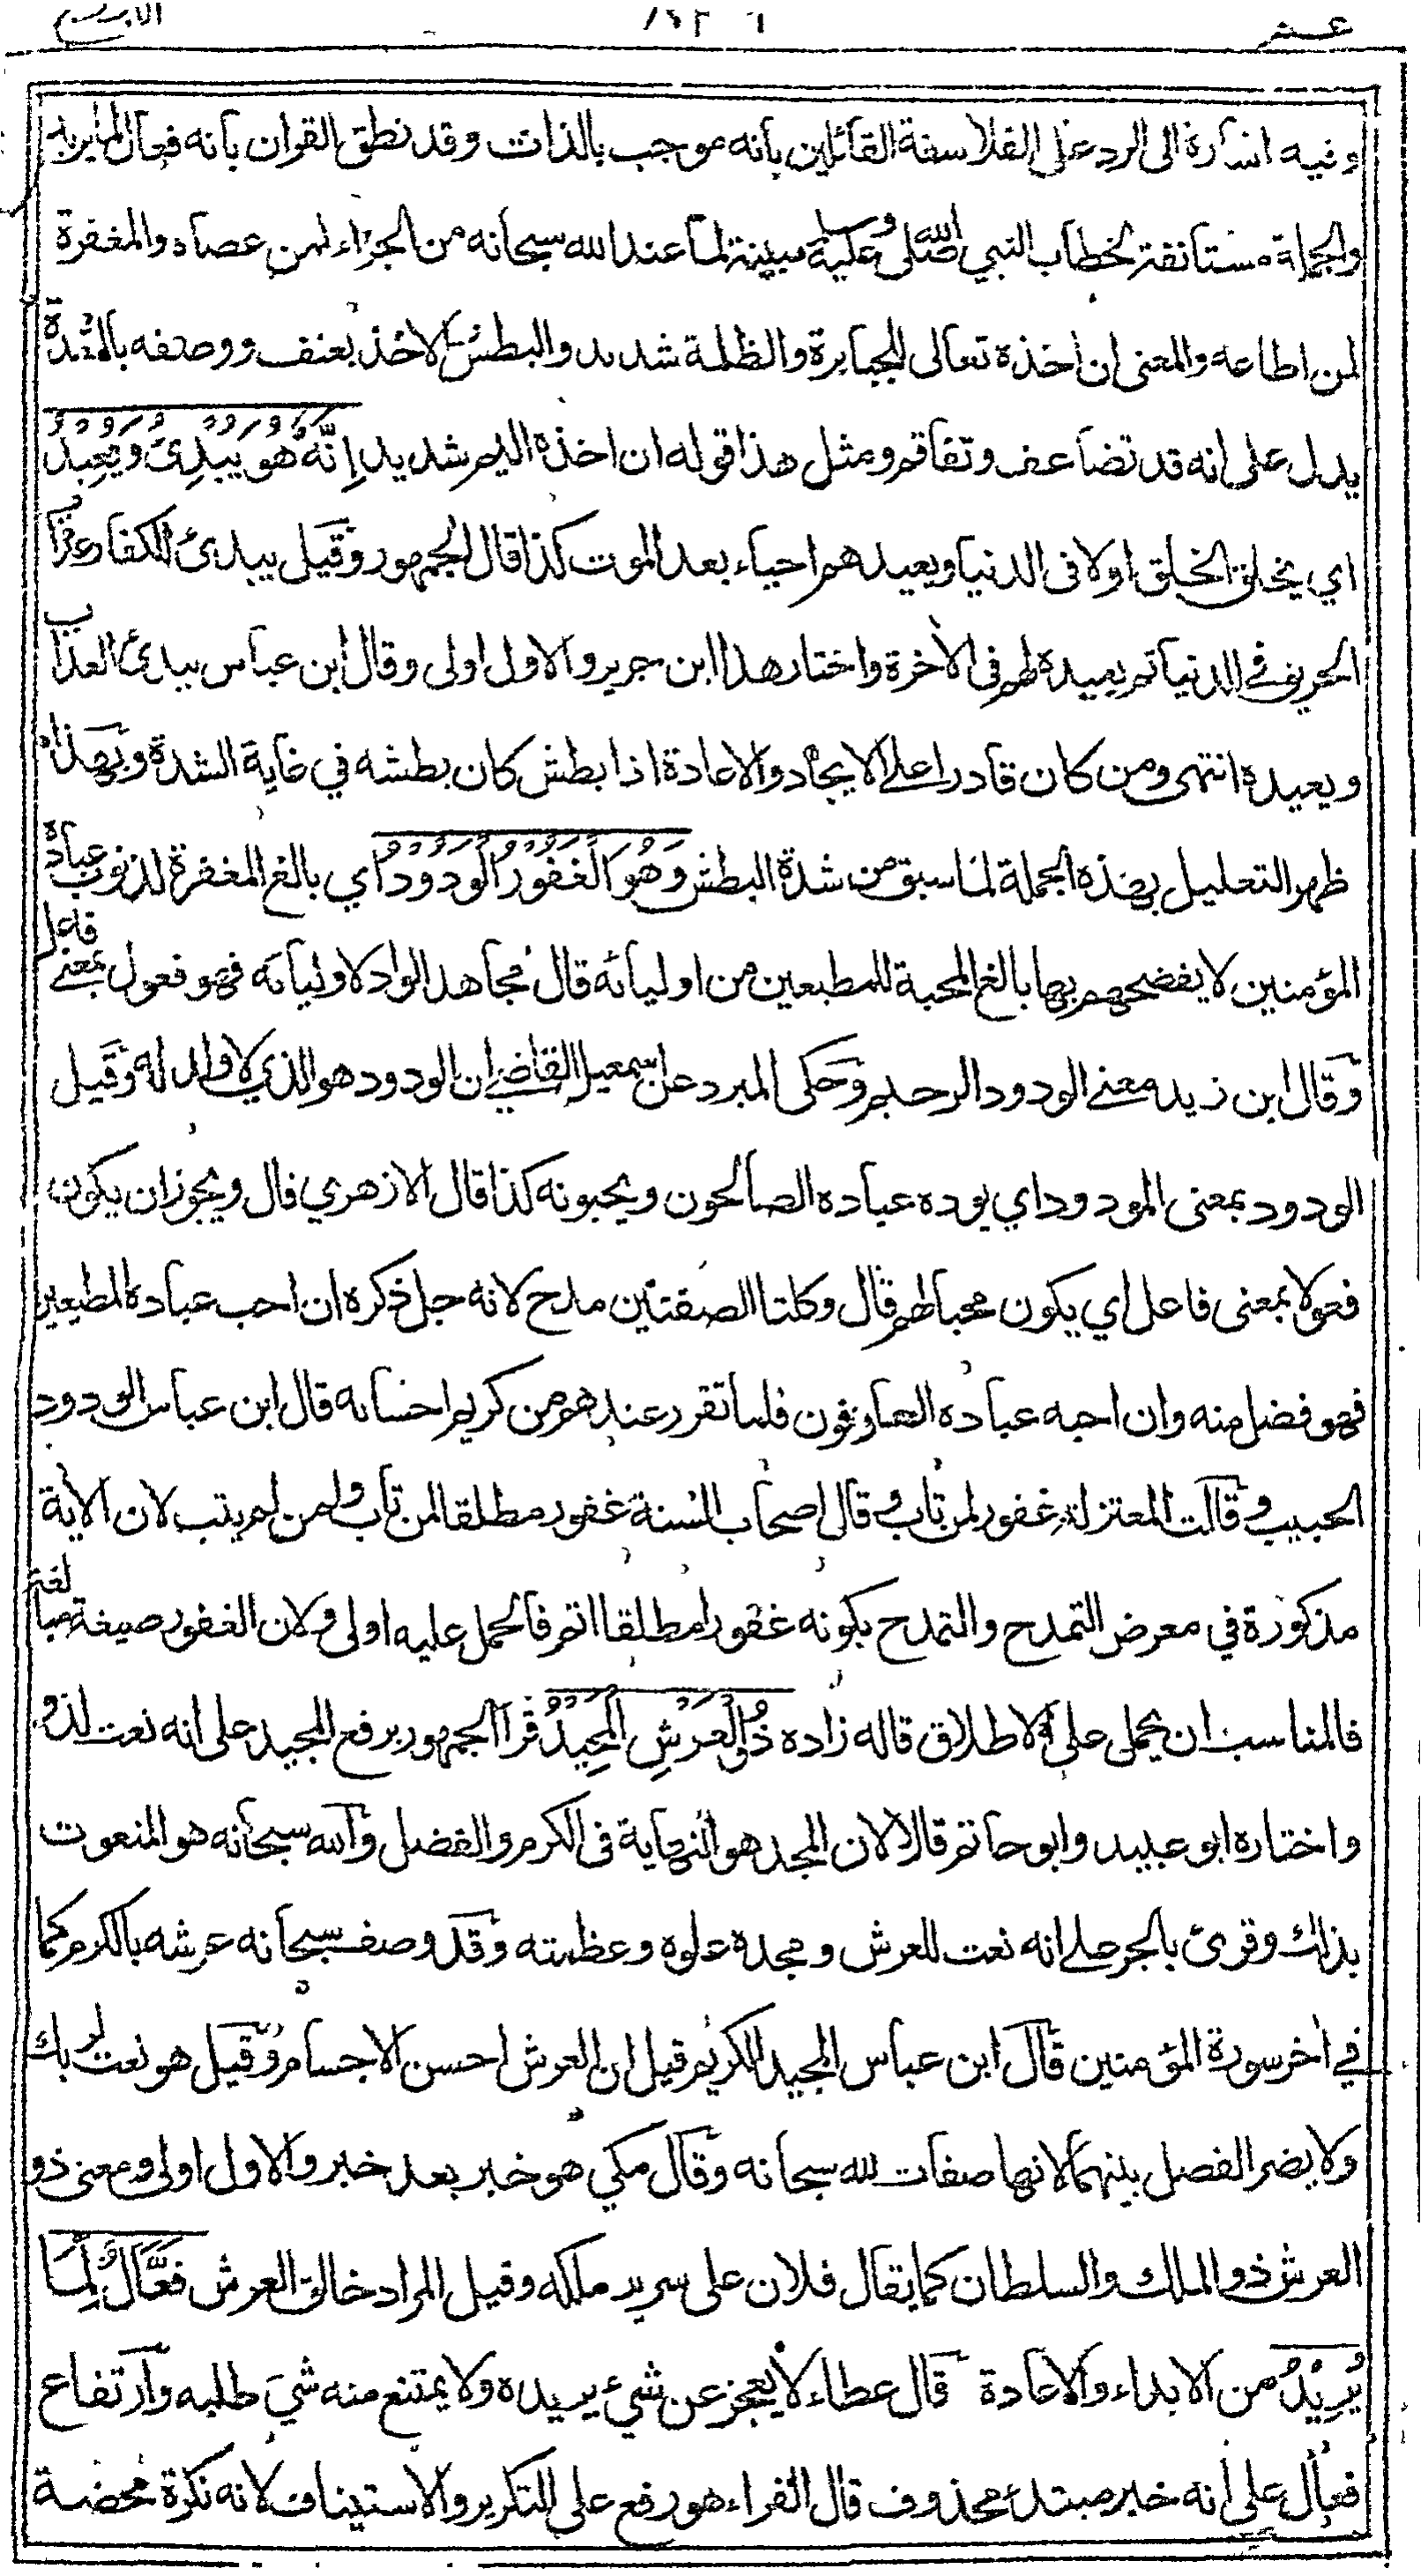 عـم
البروج
وفيه اشارة الى الرد على الفلاسفة القائلين بانه موجب بالذات وقد نطق القران بانه فعال لما يريد
والجملة مستانفة لخطاب النبي صلى الله عليه وسلم مبينة لما عند الله سبحانه من الجزاء لمن عصاه والمغفرة
لمن اطاعه والمعنى ان اخذه تعالى للجبابرة والظلمة شديد والبطش الاخذ بعنف ووصفه بالشدة
يدل على انه قد تضاعف وتفاقم ومثل هذا قوله ان اخذه اليم شديد إِنَّهُ هُوَ يُبْدِئُ وَيُعِيدُ
اي يخلق الخلق اولا في الدنيا ويعيدهم احياء بعد الموت كذا قال الجمهور وقيل يبدئ للكفار عذاب
الحريق في الدنيا ثم يعيده لهم في الاخرة واختار هذا ابن جرير والاول اولى وقال ابن عباس يبدئ العذاب
ويعيده انتهى ومن كان قادرا على الايجاد والاعادة اذا بطش كان بطشه في غاية الشدة وبهذا
ظهر التعليل بهذه الجملة لما سبق من شدة البطش وَهُوَ الْغَفُورُ الْوَدُودُ اي بالغ المغفرة لذنوب عباده
المؤمنين لا يفضحهم بها بالغ المحبة للمطيعين من اوليائه قال مجاهد الواد لاوليائه فهو فعول بمعنى فاعل
وقال ابن زيد معنى الودود الرحيم وحكى المبرد عن اسمعيل القاضي ان الودود هو الذي لا ولد له وقيل
الودود بمعنى المودود اي يوده عباده الصالحون ويحبونه كذا قال الازهري قال ويجوز ان يكون
فعولا بمعنى فاعل اي يكون محبا لهم قال وكلتا الصفتين مدح لانه جل ذكره ان احب عباده المطيعين
فهو فضل منه وان احبه عباده العارفون فلما تقرر عندهم من كريم احسانه قال ابن عباس الودود
الحبيب وقالت المعتزلة غفور لمن تاب وقال اصحاب السنة غفور مطلقا لمن تاب ولمن لم يتب لان الاية
مذكورة في معرض التمدح والتمدح بكونه غفورا مطلقا اتم فالحمل عليه اولى ولان الغفور صيغة مبالغة
فالمناسب ان يحمل على الاطلاق قاله زاده ذُو الْعَرْشِ الْمَجِيدُ قرأ الجمهور برفع المجيد على انه نعت لذو
واختاره ابو عبيد وابو حاتم قالا لان المجد هو النهاية في الكرم والفضل والله سبحانه هو المنعوت
بذلك وقرئ بالجر على انه نعت للعرش ومجده علوه وعظمته وقد وصف سبحانه عرشه بالكرم كما
في اخر سورة المؤمنين قال ابن عباس المجيد الكريم قيل ان العرش احسن الاجسام وقيل هو نعت لربك
ولا يضر الفصل بينهما لانها صفات لله سبحانه وقال مكي هو خبر بعد خبر والاول اولى ومعنى ذو
العرش ذو الملك والسلطان كما يقال فلان على سرير ملكه وقيل المراد خالق العرش فَعَّالٌ لِّمَا
يُرِيْدُ من الابداء والاعادة قال عطاء لا يعجز عن شيء يريده ولا يمتنع منه شيء طلبه وارتفاع
فعال على انه خبر مبتدء محذوف قال الفراء هو رفع على التكرير والاستيناف لانه نكرة محضة